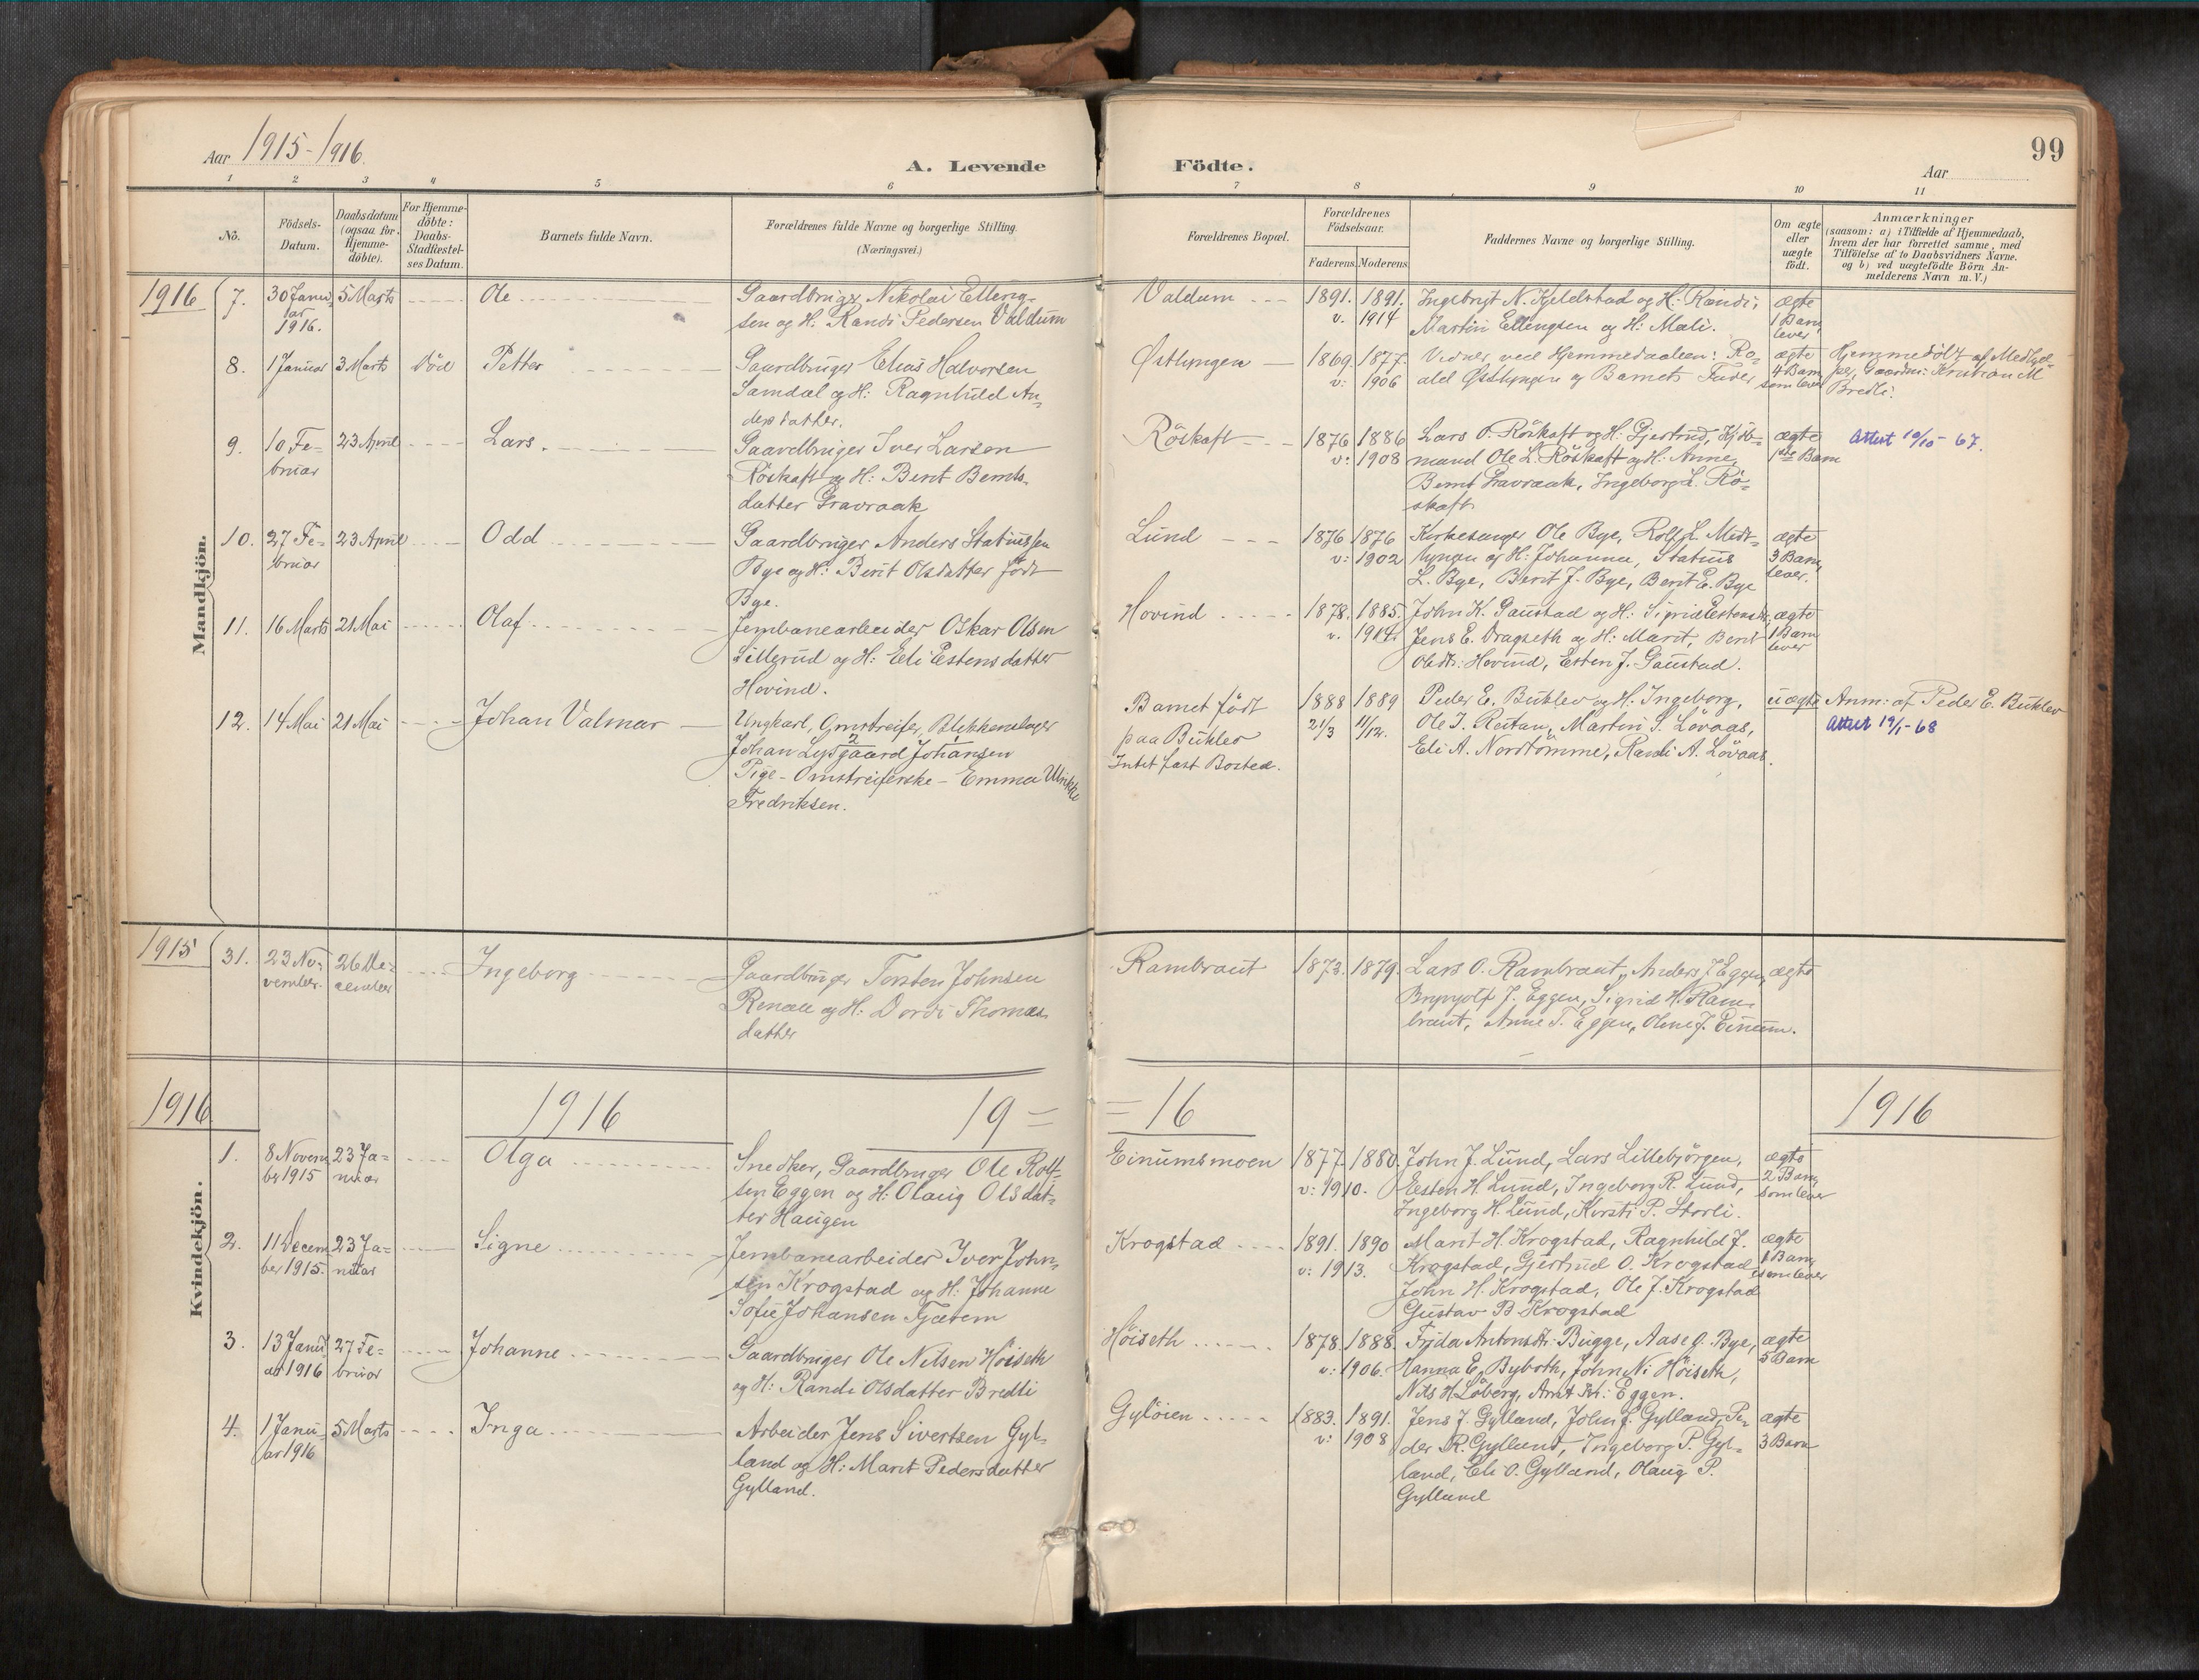 Aar 1915-1916.
A. Levende
Födte.
Aar
99
1 2 3 4 5 6 7 8 9 10 11
No.
Födsels-
Datum.
Daabsdatum
(ogsaa for
Hjemme-
döbte).
For Hjemme-
döbte:
Daabs-
Stadfæstel-
ses Datum.
Barnets fulde Navn.
Forældrenes fulde Navne og borgerlige Stilling.
(Næringsvei.)
Forældrenes Bopæl.
Forældrenes
Födselsaar.
Faderens. Moderens.
Faddernes Navne og borgerlige Stilling.
Om ægte
eller
uægte
födt.
Anmærkninger
(saasom: a) i Tilfælde af Hjemmedaab,
hvem der har forrettet samme, med
Tilföielse af to Daabsvidners Navne.
og b) ved uægtefödte Börn An-
melderens Navn m.V.)
Mandkjön.
1916
7. 30 Janu
ar
1916.
5 Marts
Ole
Gaardbruger Nikolai Elleng-
sen og H. Randi Pedersen Valdum
Valdum
1891. 1891.
v. 1914
Ingebrigt N. Kjeldstad og H: Randi;
Martin Ellengsen og H: Mali.
ægte
1 Barn
lever
8. 1 Januar 3 Marts Död Petter
Gaardbruger Elias Halvorsen
Samdal og H: Ragnhild An-
dersdatter.
Østlyngen
1869. 1877.
v: 1906
Vidner ved Hjemmedaaben: Ro-
ald Østlyngen og Barnets Fader
ægte
4 Barn
som lever
Hjemmedöbt af Medhjæl-
per, Gaardm: Kristian M
Bredli.
9. 10 Fe-
bruar
23 April
Lars.
Gaardbruger Iver Larsen
Röskaft og H: Berit Bernts-
datter Gravraak
Röskaft
1876 1886
v: 1908
Lars O. Röskaft og H: Gjertrud, Kjöb-
mand Ole L. Röskaft og H: Anne,
Bernt Gravraak, Ingeborg L. Rö-
skaft
ægte
1ste Barn
Attest 19/10-67.
10. 27 Fe-
bruar
23 April
Odd
Gaardbruger Anders Statiussen
Bye og H: Berit Olsdatter födt
Bye.
Lund
1876 1876
v: 1902
Kirkesanger Ole Bye, Rolf L. Midt-
lyngen og H: Johanna, Statius
L. Bye, Berit J. Bye, Berit E. Bye
ægte
3 Barn
lever.
11. 16 Marts 21 Mai
Olaf
Jernbanearbeider Oskar Olsen
Sillerud og H: Eli Estensdatter
Hovind.
Hovind
1878. 1885.
v. 1914.
John K. Gaustad og H: Sigrid Estensdtr,
Jens E. Dragseth og H: Marit, Berit
Olsdtr. Hovind, Esten J. Gaustad.
ægte
1 Barn
lever
12. 14 Mai 21 Mai
Johan Valmar
Ungkarl, Omstreifer, Blikkenslager
2 1
Johan Lysgaard Johansen
Pige - Omstreiferske - Emma Ulrikke
Fredriksen.
Barnet födt
paa Buklev
Intet fast Bosted.
1888 1889
21/3 11/12.
Peder E. Buklev og H: Ingeborg,
Ole I. Reitan, Martin S. Lövaas,
Eli A. Nordtömme, Randi A. Lövaas.
uægte
Anm: af Peder E. Buklev
Attest 19/1-68
Kvindekjön.
1915
31. 23 No-
vember.
26 De-
cember
Ingeborg
Gaardbruger Torsten Johnsen
Renaa og H: Dordi Thomas-
datter
Rambraut
1873. 1879.
Lars O. Rambraut, Anders J Eggen,
Brynjolf J. Eggen, Sigrid H. Ram-
braut, Anne T. Eggen, Oline J. Einum.
ægte
1916 1916 19= =16 1916
1. 8 Novem
ber 1915
23 Ja-
nuar
Olga
Snedker, Gaardbruger Ole Rolf-
sen Eggen og H: Olaug Olsdat-
ter Haugen
Einumsmoen
1877. 1880.
v: 1910.
John J. Lund, Lars Lillebjörgen,
Esten H. Lund, Ingeborg R. Lund,
Ingeborg H. Lund, Kirsti P. Storli.
ægte
2 Barn
som lever
2. 11 Decem
ber 1915.
23 Ja-
nuar
Signe
Jernbanearbeider Iver John-
sen Krogstad og H: Johanne
Sofie Johansen Tjætern
Krogstad
1891. 1890
v: 1913.
Marit H. Krogstad, Ragnhild J.
Krogstad, Gjertrud O. Krogstad,
John H. Krogstad, Ole J. Krogstad
Gustav B. Krogstad
ægte
1 Barn
som lever
3. 13 Janu
ar 1916
27 Fe-
bruar
Johanne
Gaardbruger Ole Nilsen Höiseth
og H: Randi Olsdatter Bredli
Höiseth
1878. 1888.
v: 1906.
Frida Antonsdtr. Bugge, Aase O. Bye,
Hanna E. Byboth, John N. Höiseth,
Nils H Löberg, Arnt Joh: Eggen.
ægte
5 Barn
4. 1 Janu-
ar 1916
5 Marts
Inga
Arbeider Jens Sivertsen Gyl-
land og H: Marit Pedersdatter
Gylland.
Gylöien
1883. 1891.
v: 1908
Jens J. Gylland, John J. Gylland, Pe-
der R. Gylland, Ingeborg P. Gyl-
land, Eli O. Gylland, Olaug P.
Gylland
ægte
3 Barn